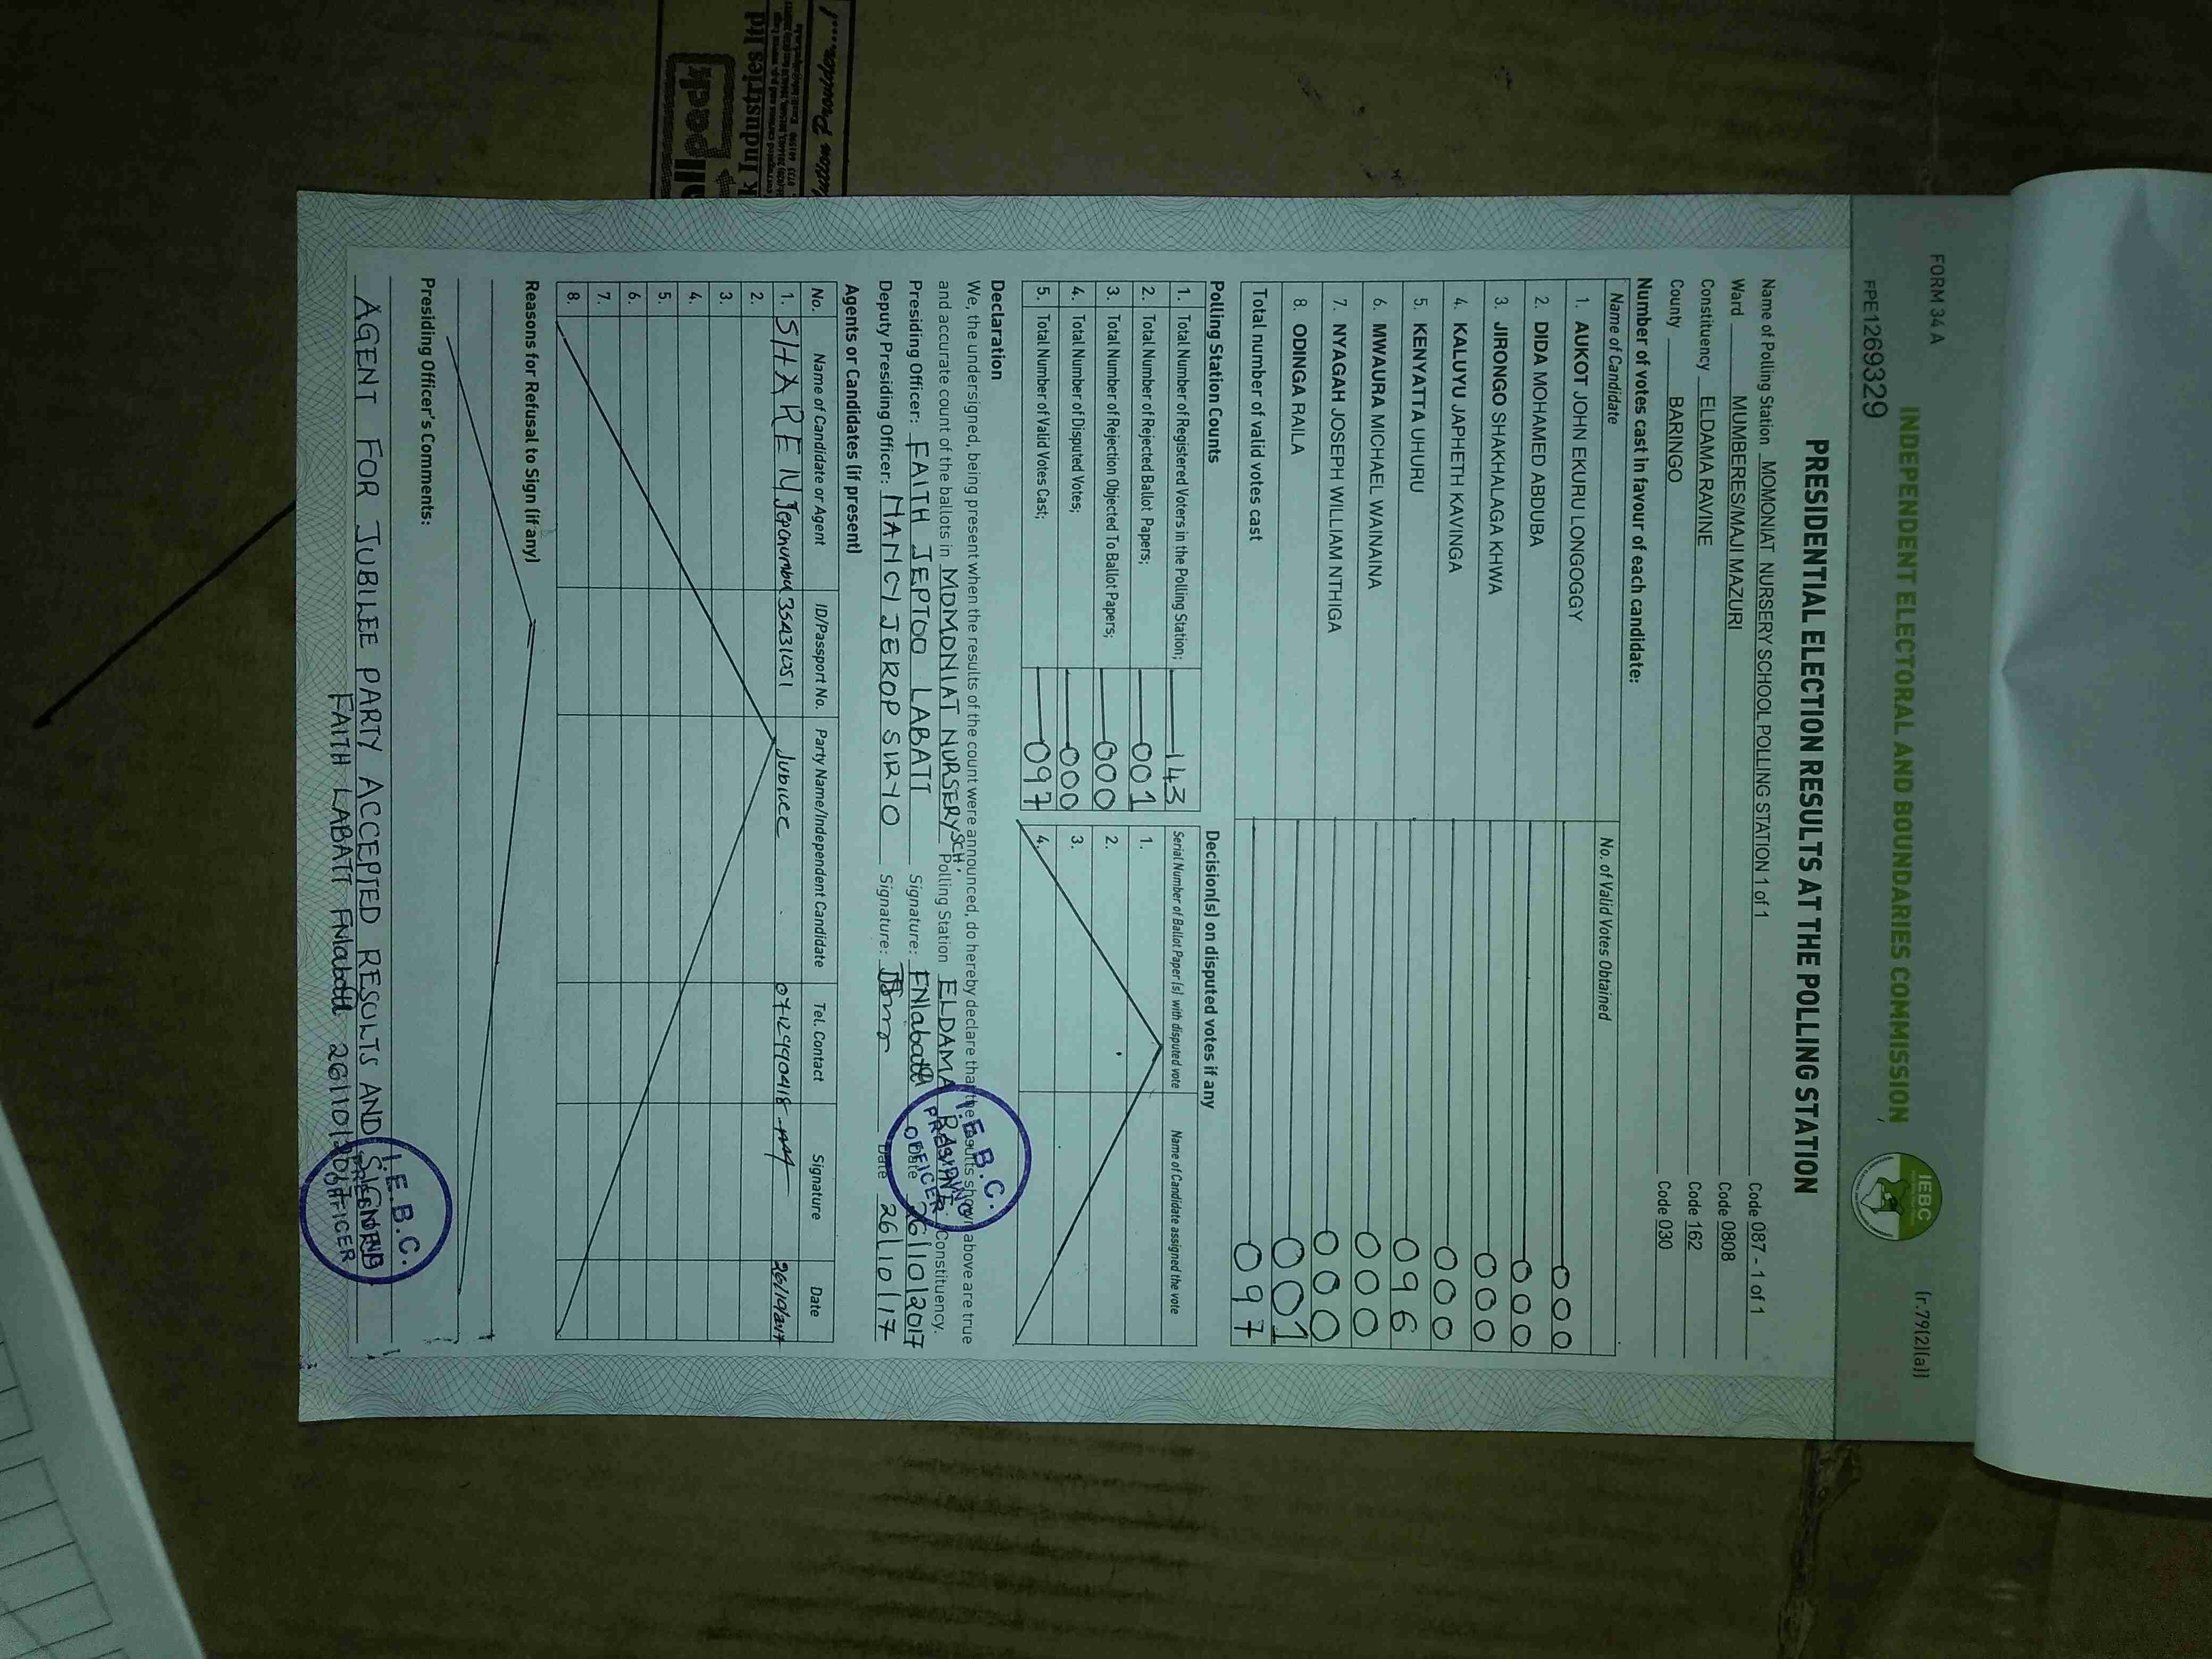 FORM 34 A
(r.79(2)(a))
INDEPENDENT ELECTORAL AND BOUNDARIES COMMISSION
IEBC
PE1269329
PRESIDENTIAL ELECTION RESULTS AT THE POLLING STATION
Name of Polling Station MOMONIAT NURSERY SCHOOL POLLING STATION 1 of 1 Code 087 - 1 of 1
Ward MUMBERES/MAJI MAZURI Code 0808
Constituency ELDAMA RAVINE Code 162
County BARINGO Code 030
Number of votes cast in favour of each candidate:
Name of Candidate No. of Valid Votes Obtained
1. AUKOT JOHN EKURU LONGOGGY 000
2. DIDA MOHAMED ABDUBA 000
3. JIRONGO SHAKHALAGA KHWA 000
4. KALUYU JAPHETH KAVINGA 000
5. KENYATTA UHURU 096
6. MWAURA MICHAEL WAINAINA 000
7. NYAGAH JOSEPH WILLIAM NTHIGA 000
8. ODINGA RAILA 001
Total number of valid votes cast 097
Polling Station Counts
1. Total Number of Registered Voters in the Polling Station; 143
2. Total Number of Rejected Ballot Papers; 001
3. Total Number of Rejection Objected To Ballot Papers; 000
4. Total Number of Disputed Votes; 000
5. Total Number of Valid Votes Cast; 097
Decision(s) on disputed votes if any
Serial Number of Ballot Paper(s) with disputed vote Name of Candidate assigned the vote
1.
2.
3.
4.
Declaration
We, the undersigned, being present when the results of the count were announced, do hereby declare that the results shown above are true
and accurate count of the ballots in MOMONIAT NURSERY SCH. Polling Station ELDAMA RAVINE Constituency.
Presiding Officer: FAITH JEPTOO LABATT Signature: FNlabatt Date 26/10/2017
Deputy Presiding Officer: NANCY JEROP Signature: Date 26/10/17
I.E.B.C.
PRESIDING
OFFICER
Agents or Candidates (if present)
No. Name of Candidate or Agent ID/Passport No. Party Name/Independent Candidate Tel. Contact Signature Date
1. Jubilee 26/10/2017
2.
3.
4.
5.
6.
7.
8.
Reasons for Refusal to Sign (if any)
Presiding Officer's Comments:
AGENT FOR JUBILEE PARTY ACCEPTED RESULTS AND SIGNED
FAITH LABATT FNlabatt 26/10/2017
I.E.B.C.
PRESIDING
OFFICER